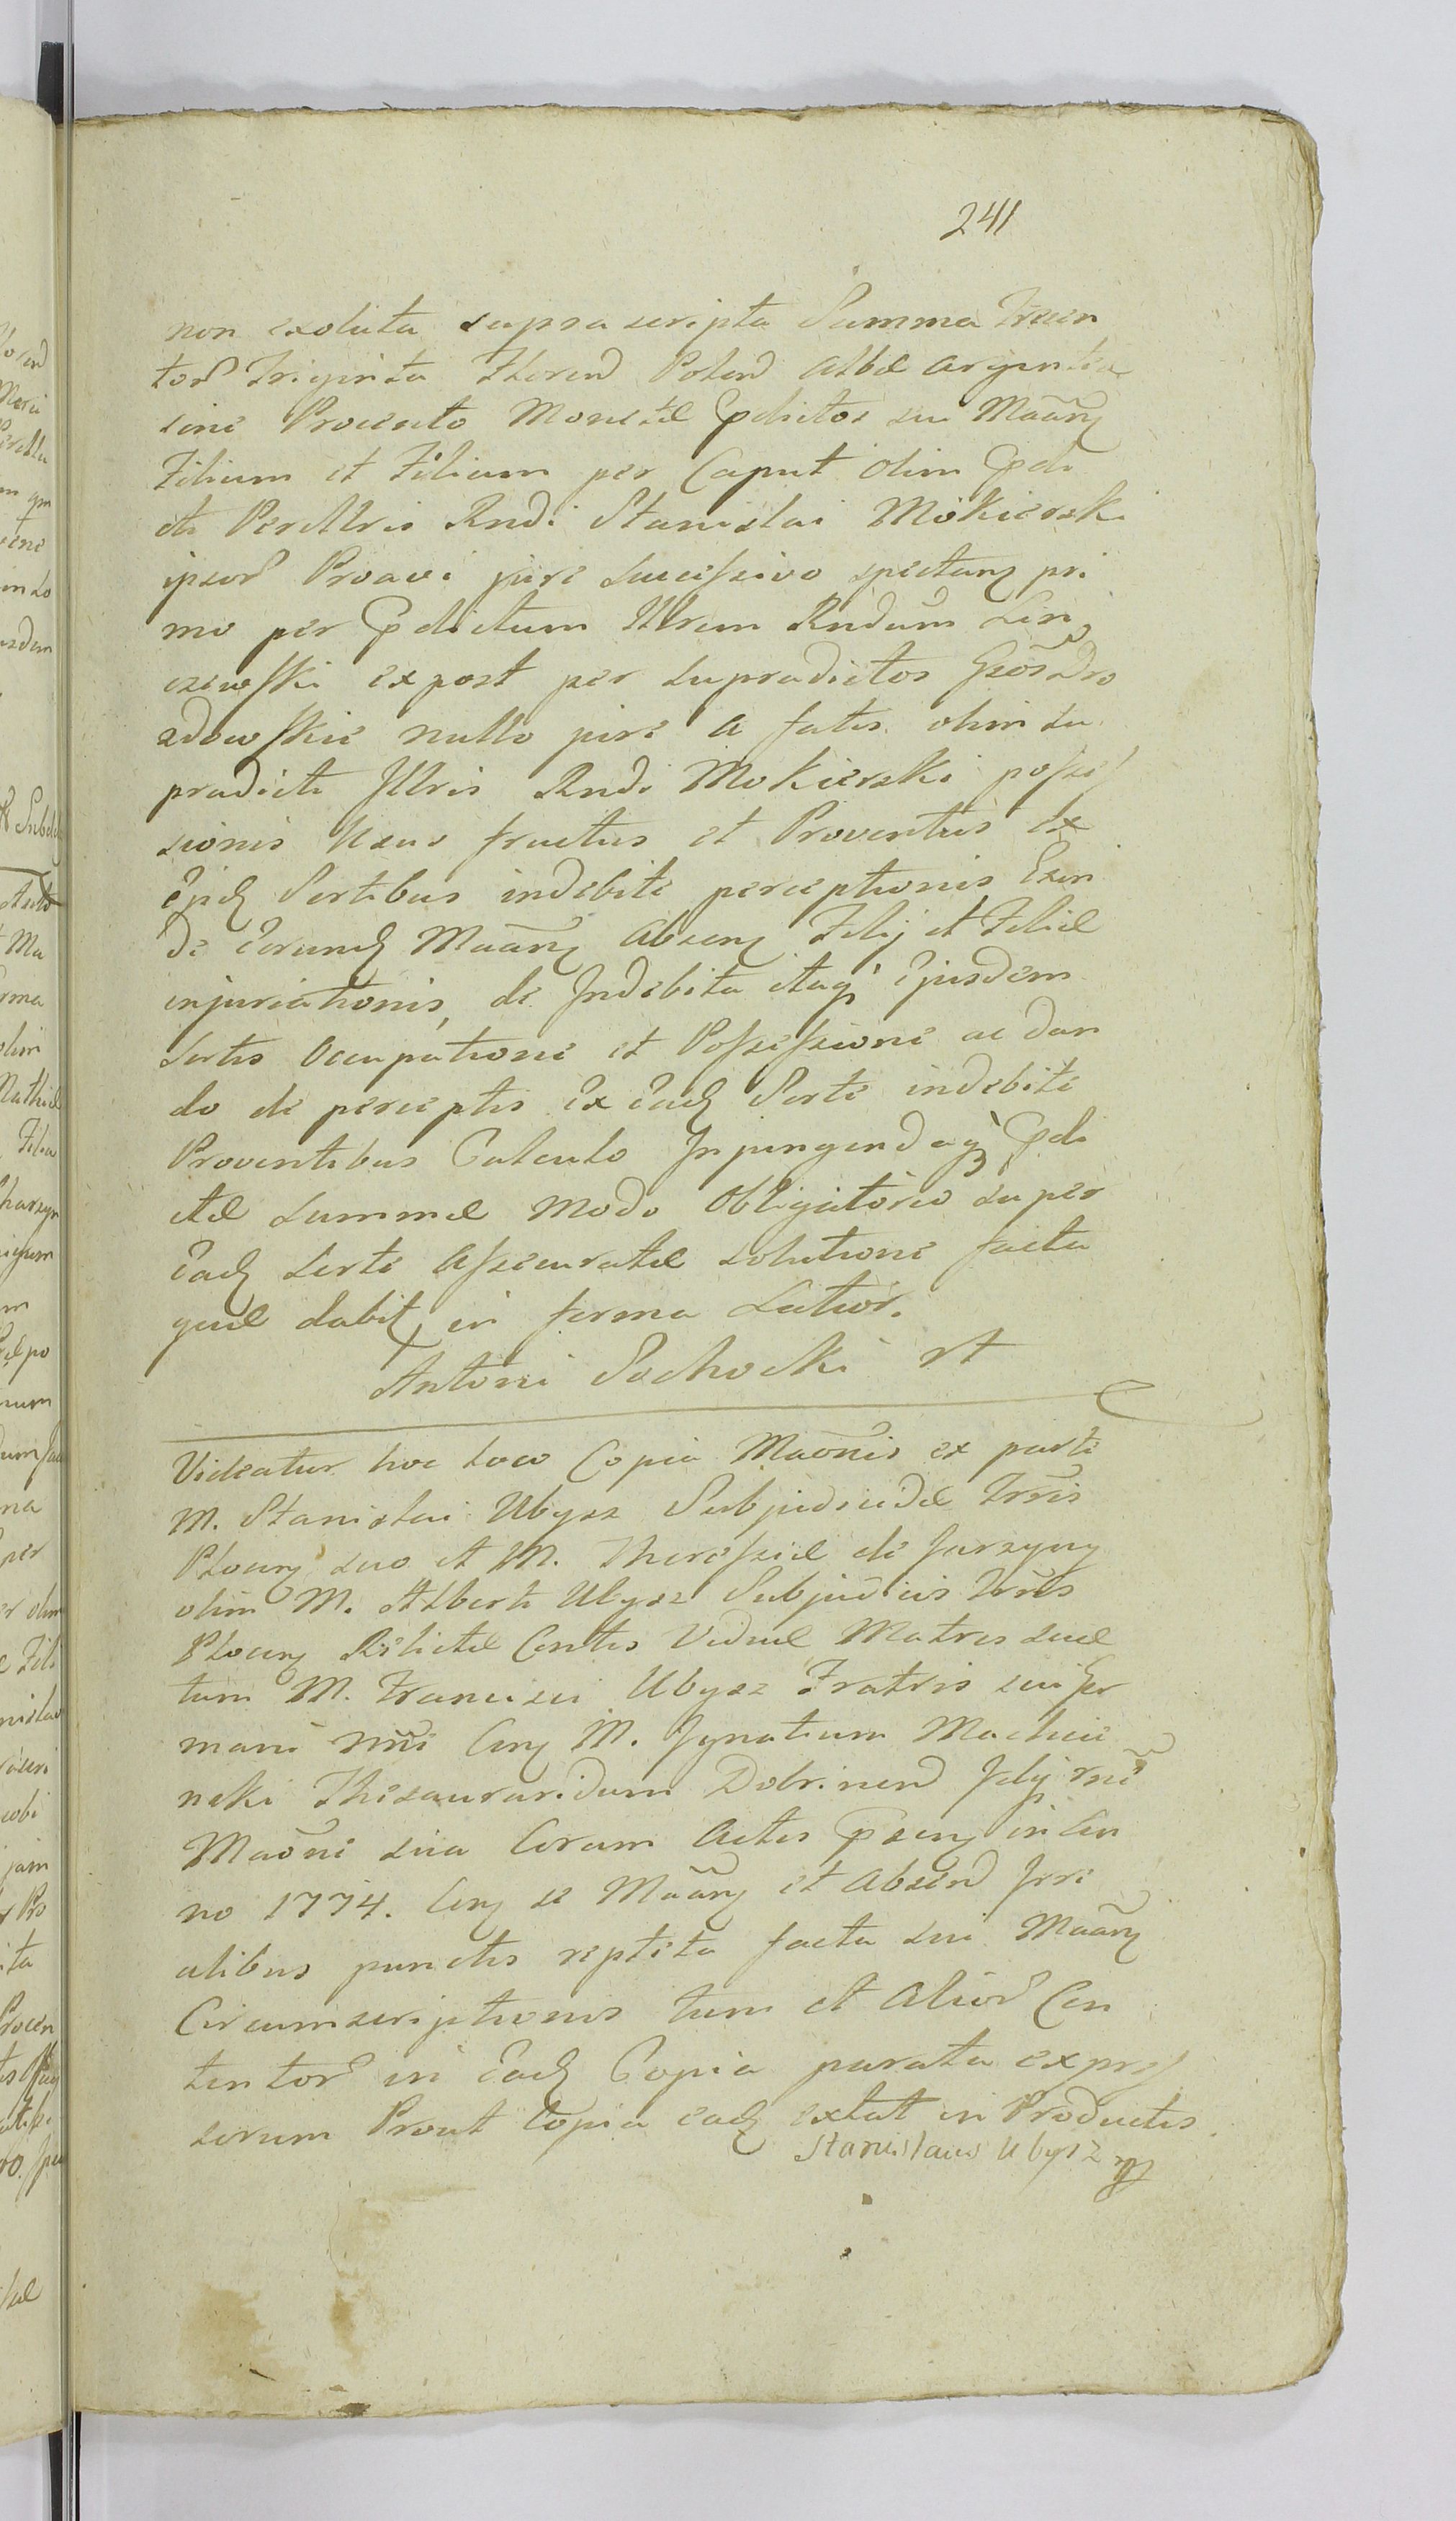 241
non exoluta supra scripta Summa Trecen
tor Triginta Floren Polon Albæ argenteæ
sine Procento Monetæ Pdictos sui Maãn
Filium et Filiam per Caput olim Pdi
cti Perillris Rndi Stanislai Mokierski
ipsor Proavi jure successivo spectan pri
mo per Pdictum Illrem Rndum Len
czewski expost per supradictos Gsõs Dro
zdowskie nullo jure a fatis olim su
pradicti Illris Rndi Mokierski posses
sionis Usus fructus et Proventus Ex
Ejsd Sortibus indebite perceptionis Exin
de Eorund Maãn Absen Filij et Filiæ
injuriationis, de Indebita itaq Ejusdem
Sortis Occupatione et Possessione ac dan
do de perceptis Ex Ead Sorte indebite
Proventibus Calculo Injungendaq Pdi
ctæ Summæ Modo Obligatorio super
Ead Sorte Assecuratæ solutione facta
quæ dabit in forma Latior.
Antoni Sochocki
Videatur hoc loco Copia Maõnis ex parte
M. Stanislai Ubysz Subjudicidæ Trris
Plocen suo et M. Theressiæ de
olim M. Alberti Ubysz Subjudicis Trris
Plocen Relictæ Contis Viduæ Matris suæ
tum M. Francisci Ubysz Fratris sui Ger
mani nni Con M. Ignatium Machcie
nski Thesauraridum Dobrinen
Maõni sua Coram Actis Psen in An
no 1774. Con se Maãn et Absen Irri
alibus punctis reptita facta sui Maãn
Circumscriptionis tum et Alior Con
tentor in Ead Copia parata expres
sorum Prout Copia ead extat in Productis.
Stanislaus Ubysz mp